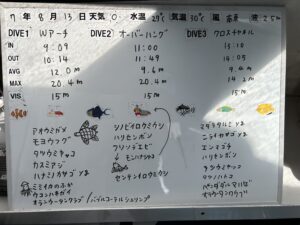 7年 8月 13日 天気 ○ 水温 29℃ 気温 30℃ 風 南東 波 2.5m
DIVE1 Wアーチ DIVE2 オーバーハング DIVE3 クロスチャネル
IN 9:09 11:00 13:10
OUT 10:14 11:49 14:05
AVG 12.0m 9.6m 9.4m
MAX 20.4m 20.4m 14.2m
VIS 15m 15m 15m
アオウミガメ シノビイロウミウシ マダラタルミyg
モヨウフグ ハリセンボン ニラミカサゴyg
タツウミヤッコ クリソデエビ エンマゴチ
カスミアジ モンハナシャコ ハリセンボン
ハナミノカサゴyg センテンイロウミウシ
ミミイカのふ化
ウコンハネガイ ペンタゴナルマリガニ
オランウータンクラブ バブルコーラルシュリンプ オランウータンクラブ